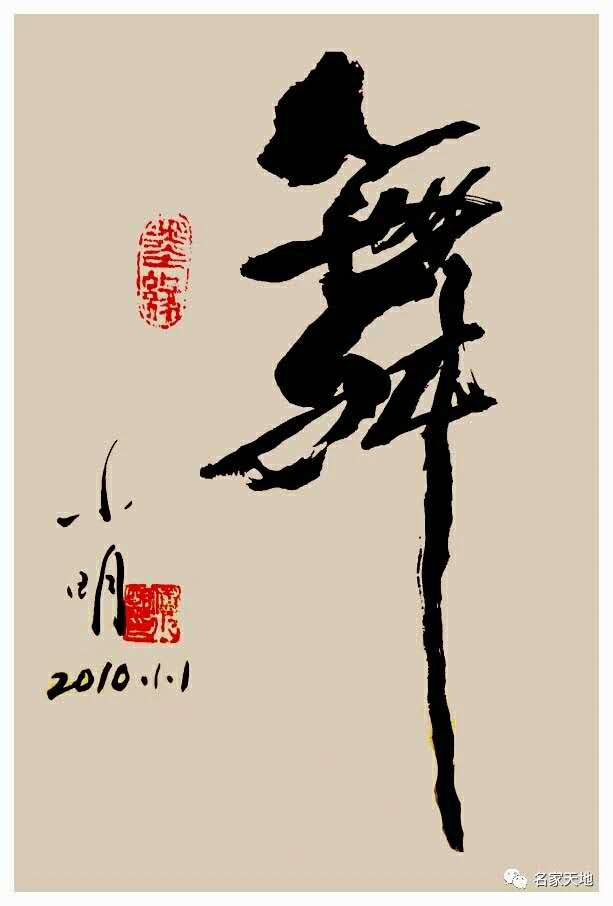 舞
小明
2010.1.1
名家天地